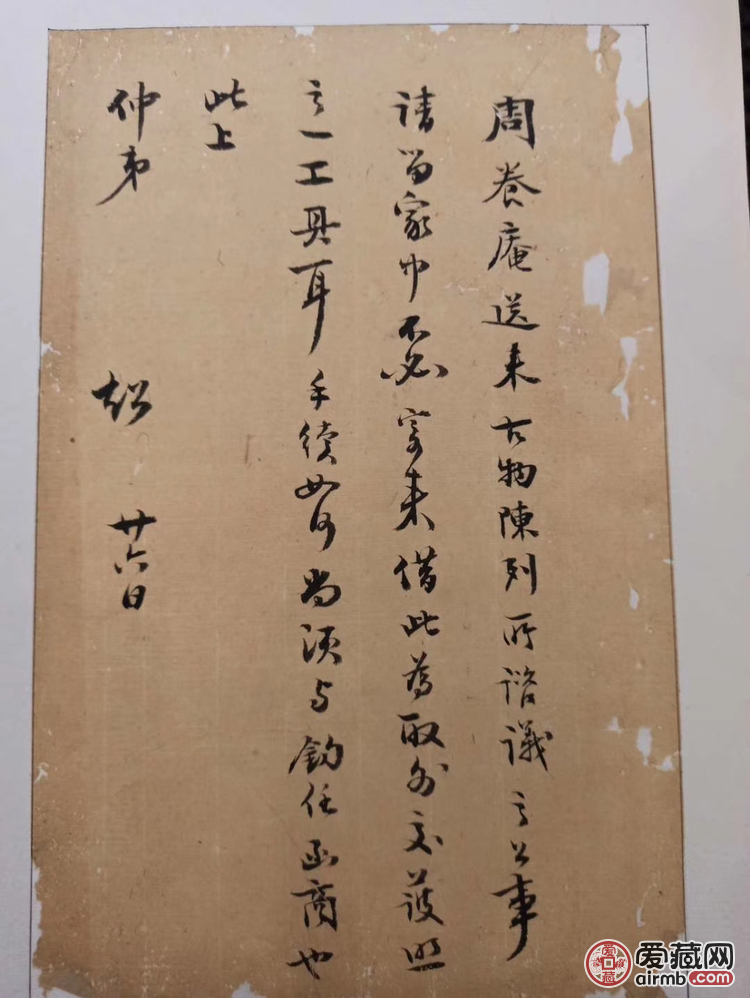 周養庵送来古物陳列所諮議之公事
請留家中不必寄来借此為取外交護照
之一工具耳手續如何尚須与鈞任函商也
此上
仲弟
超 廿六日
爱藏网
airmb.com